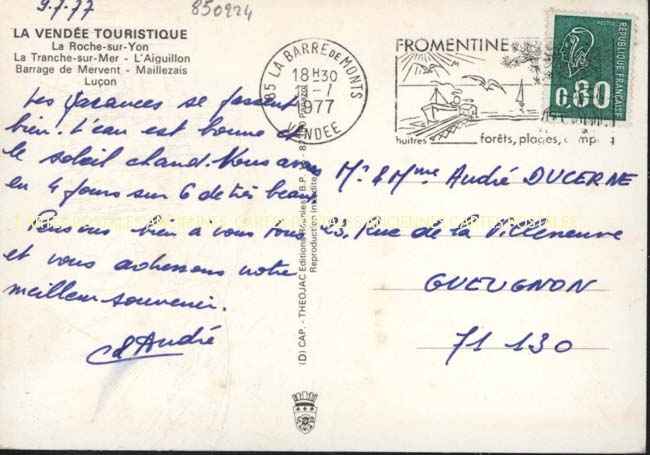 9.7.77
850224
LA VENDÉE TOURISTIQUE
La Roche-sur-Yon
La Tranche-sur-Mer - L'Aiguillon
Barrage de Mervent - Maillezais
Luçon
Les vacances se passent
bien. L'eau est bonne et
le soleil chaud. Nous avons
eu 4 jours sur 6 de très beau
Pensons bien à vous tous
et vous adressons notre
meilleur souvenir.
André
(D) CAP. - THEOJAC Editions
Reproduction interdite
85 LA BARRE DE MONTS
18H30
-7
1977
VENDEE
FROMENTINE
huîtres
forêts, plages, camping
POSTES
REPUBLIQUE FRANCAISE
0,80
Mr & Mme André DUCERNE
23, Rue de la Villeneuve
GUEUGNON
71 130
CARTES POSTALES ANCIENNES CARTES POSTALES ANCIENNES CARTES POSTALES